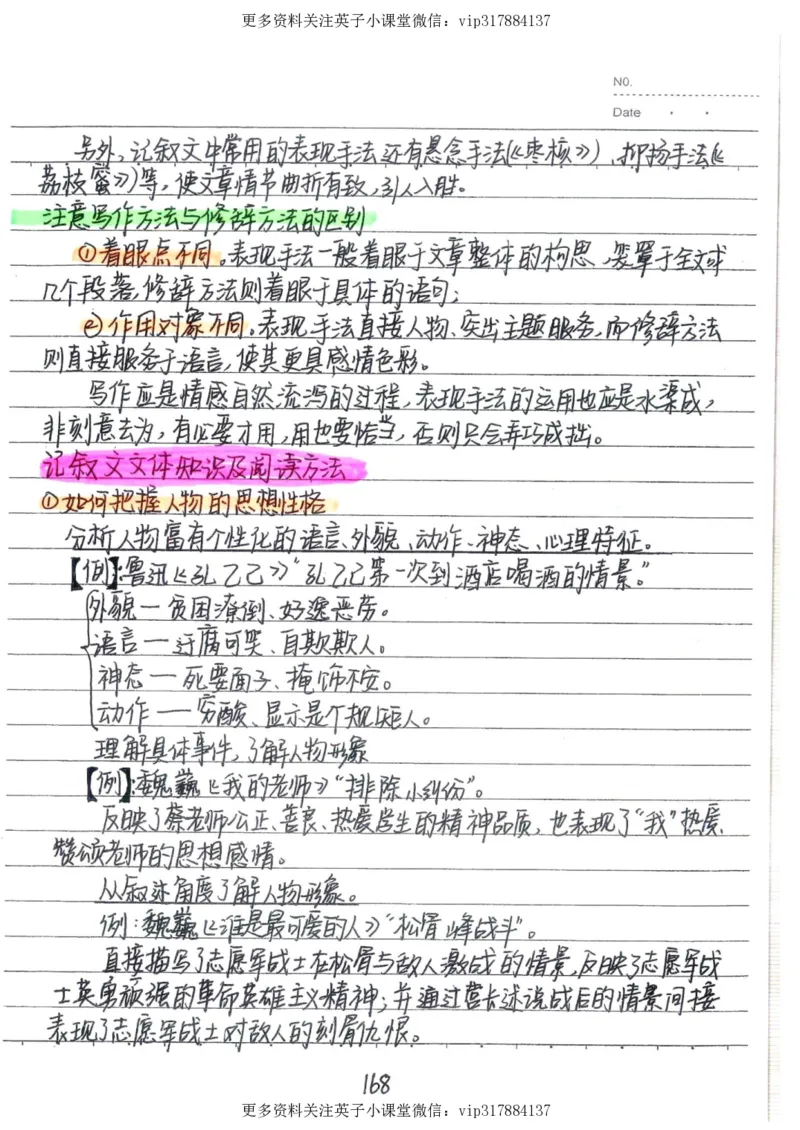 更多资料关注英子小课堂微信：vip317884137
NO.
Date
另外，记叙文中常用的表现手法还有悬念手法(《枣核》)、抑扬手法(《
荔枝蜜》)等，使文章情节曲折有致，引人入胜。
注意写作方法与修辞方法的区别
①着眼点不同。表现手法一般着眼于文章整体的构思、笼罩于全文或
几个段落，修辞方法则着眼于具体的语句；
②作用对象不同。表现手法直接人物、突出主题服务，而修辞方法
则直接服务于语言，使其更具感情色彩。
写作应是情感自然流泻的过程，表现手法的运用也应是水渠成，
非刻意去为，有必要才用，用也要恰当，否则只会弄巧成拙。
记叙文文体知识及阅读方法
①如何把握人物的思想性格
分析人物富有个性化的语言、外貌、动作、神态、心理特征。
【例】：鲁迅《孔乙己》“孔乙己第一次到酒店喝酒的情景。”
外貌一贫困潦倒、好逸恶劳。
语言一迂腐可笑、自欺欺人。
神态一死要面子、掩饰不安。
动作一穷酸、显示是个规矩人。
理解具体事件，了解人物形象
【例】：魏巍《我的老师》“排除小纠纷”。
反映了蔡老师公正、善良、热爱学生的精神品质，也表现了“我”热爱、
赞颂老师的思想感情。
从叙述角度了解人物形象。
例：魏巍《谁是最可爱的人》“松骨峰战斗”。
直接描写了志愿军战士在松骨与敌人激战的情景，反映了志愿军战
士英勇顽强的革命英雄主义精神；并通过营长述说战后的情景间接
表现了志愿军战士对敌人的刻骨仇恨。
168
更多资料关注英子小课堂微信：vip317884137